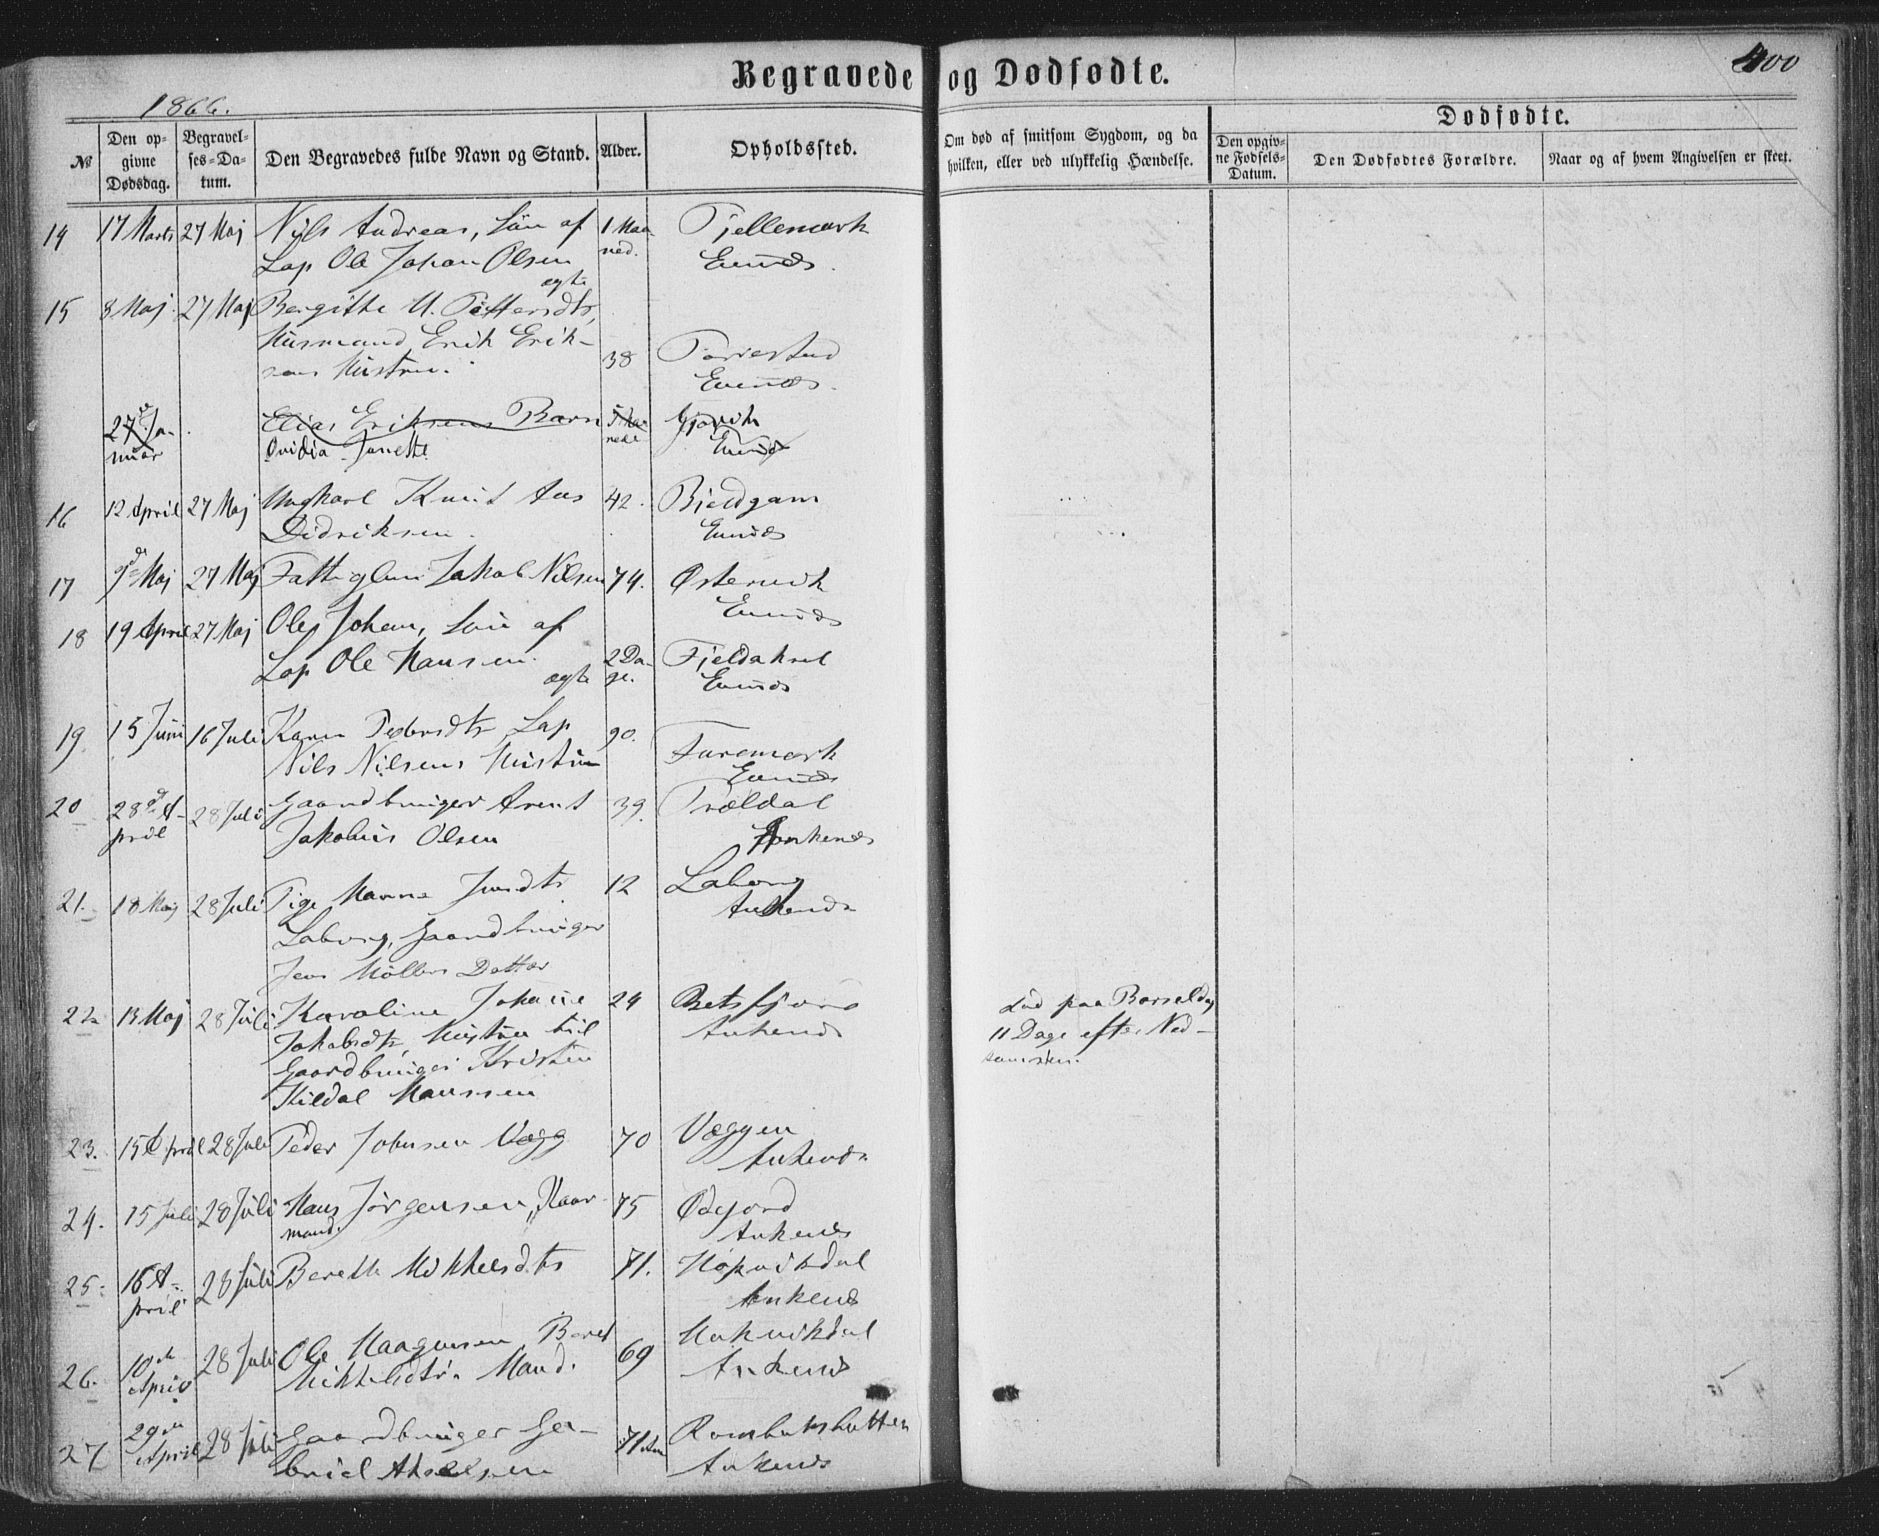 Begravede og Dødfødte.
400
1866.
Dødfødte.
№
Den op-
givne
Dødsdag.
Begravel-
ses-Da-
tum.
Den Begravedes fulde Navn og Stand.
Alder.
Opholdssted.
Om død af smitsom Sygdom, og da
hvilken, eller ved ulykkelig Hændelse.
Den opgiv-
ne Fødsels-
Datum.
Den Dødfødtes Forældre.
Naar og af hvem Angivelsen er skeet.
14 17 Marts 27 Maj Nils Andreas, Søn af 1 Maa- Fjellemark
Lap Ole Johan Olsen ned. Evenæs.
ægte
15 8 Maj 27 Maj Bergitte M. Pettersdtr,
Husmand Erik Erik- 38
sens Hustru. Evenæs.
27de Ja- Elias Eriksens Barn Gjøvik
nuar Ovidia Janette Evenæs
16 12 April 27 Maj Ungkarl Knut Aas 42. Bjeldgam
Didriksen. Evenæs
17 9de Maj 27 Maj Fattiglem Jakob Nilsen 74. Østervik
Evenæs
18 19 April 27 Maj Ole Johan, Søn af
Lap Ole Hansen. 2 Da- Fjeldaksel
ægte ge. Evenæs
19 15 Juni 16 Juli Karen Pedersdtr Lap 90.
Nils Nilsens Hustru Evenæs
20 28de A- 28 Juli Gaardbruger Arent 39. Trældal
pril Jakobus Olsen Ankenæs
21. 18 Maj 28 Juli Pige Hanna Jensdtr 12 Laborg
Laborg, Gaardbruger Ankenæs
Jens Møllers Datter
22 13 Maj 28 Juli Karoline Johanne 24 Beisfjord Død paa Barselseng
Jakobsdtr, Hustru til Ankenæs 11 Dage efter Ned-
Gaardbruger Kristen komsten.
Kildal Hanssen
23. 15 April 28 Juli Peder Johnsen Vægg 70 Væggen
Ankenæs
24. 15 Juli 28 Juli Hans Jørgensen, Kaar- 75 Øijord
mand. Ankenæs
25. 16 A- 28 Juli Berette Mikkelsdtr 71. Håkvikdal
pril Ankenæs
26. 10de 28 Juli Ole Haagensen, Beret 69 Hakvikdal
April Mikkelsdtrs Mand. Ankenæs
27 29de 28 Juli Gaardbruger Ga- 71 Rombaksbotten
April briel Akselsen Ankenæs